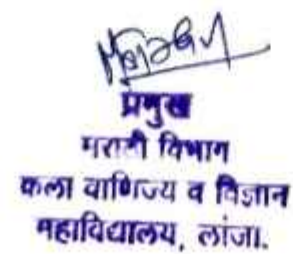 प्रमुख
मराठी विभाग
कला वाणिज्य व विज्ञान
महाविद्यालय, लांजा.